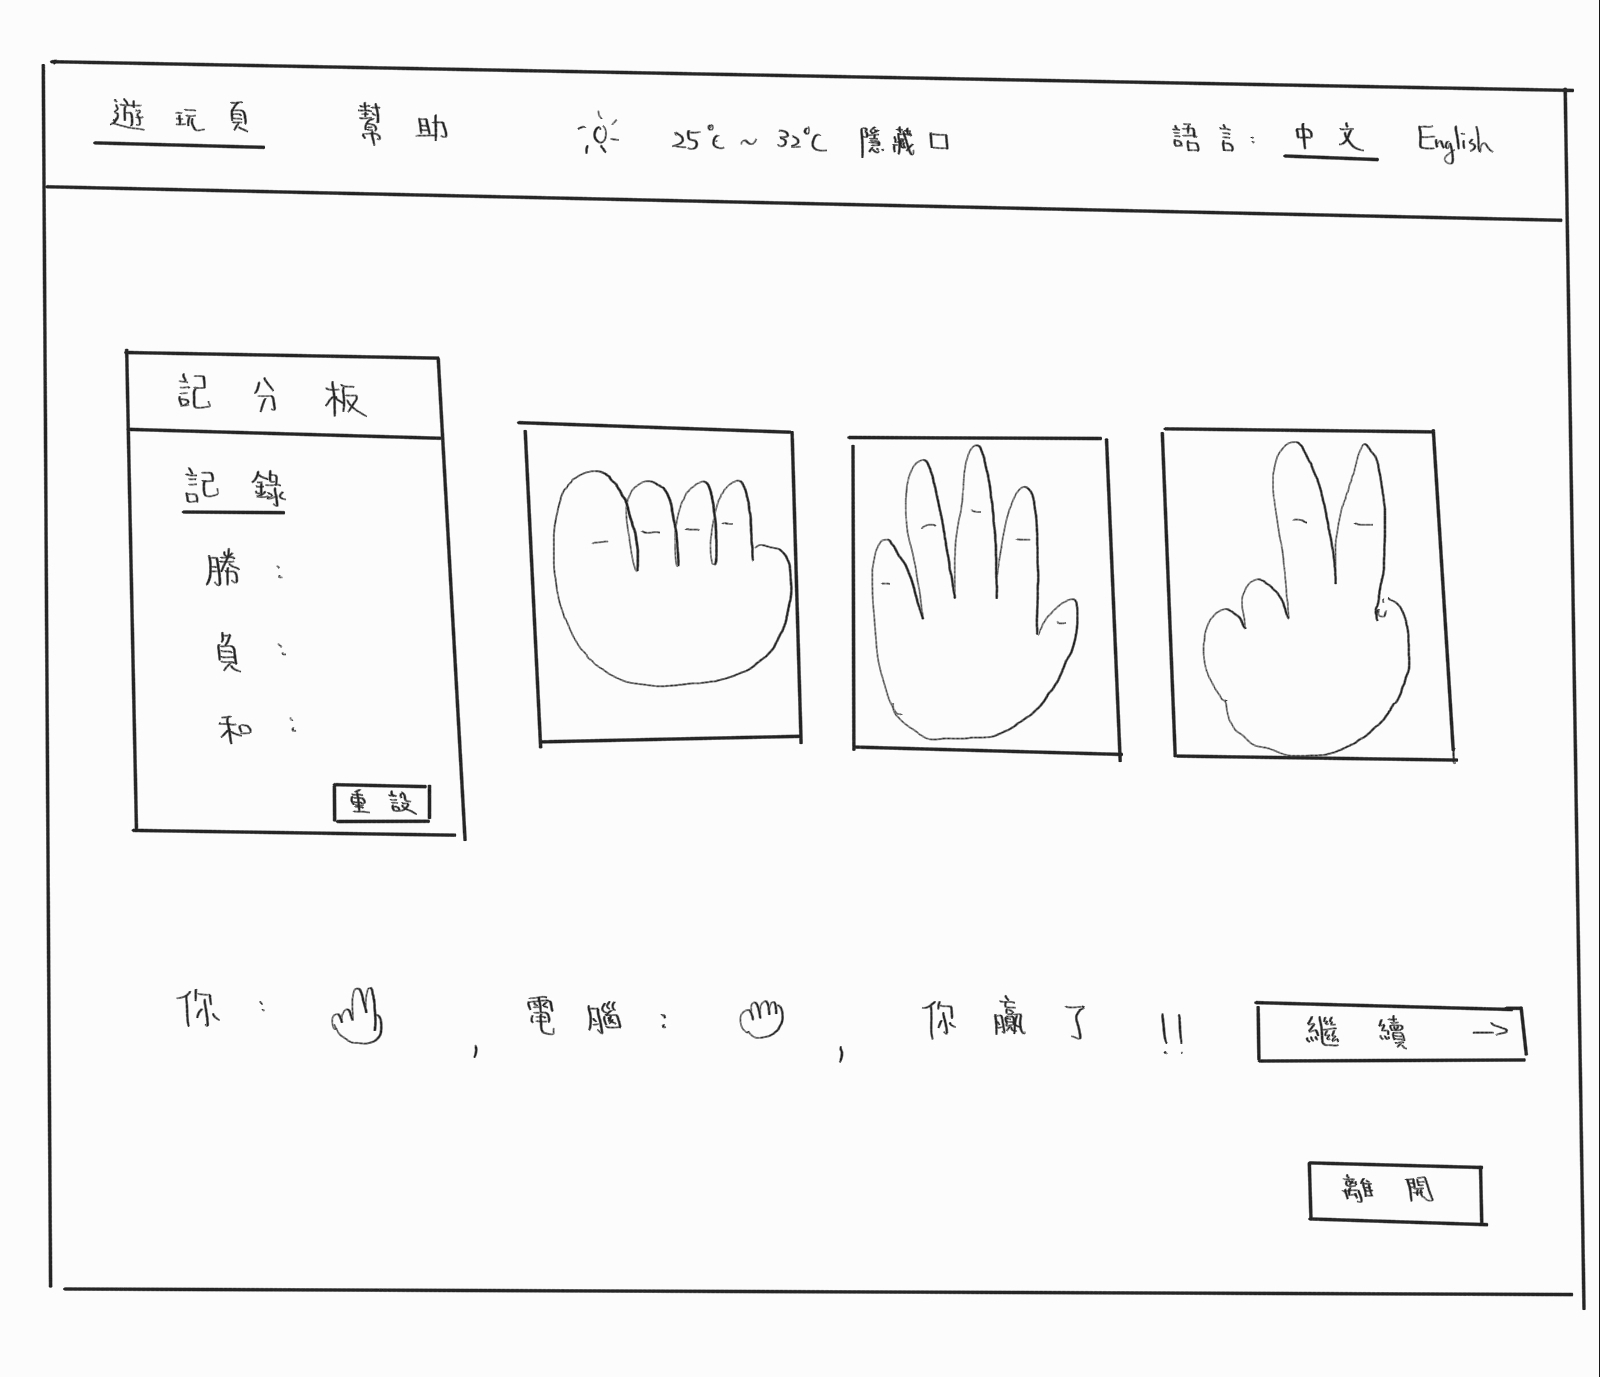 遊玩頁 幫助 25℃ ~ 32℃ 隱藏 語言: 中文 English
記分板
記錄
勝:
負:
和:
重設
你: , 電腦: , 你贏了!! 繼續 →
離開